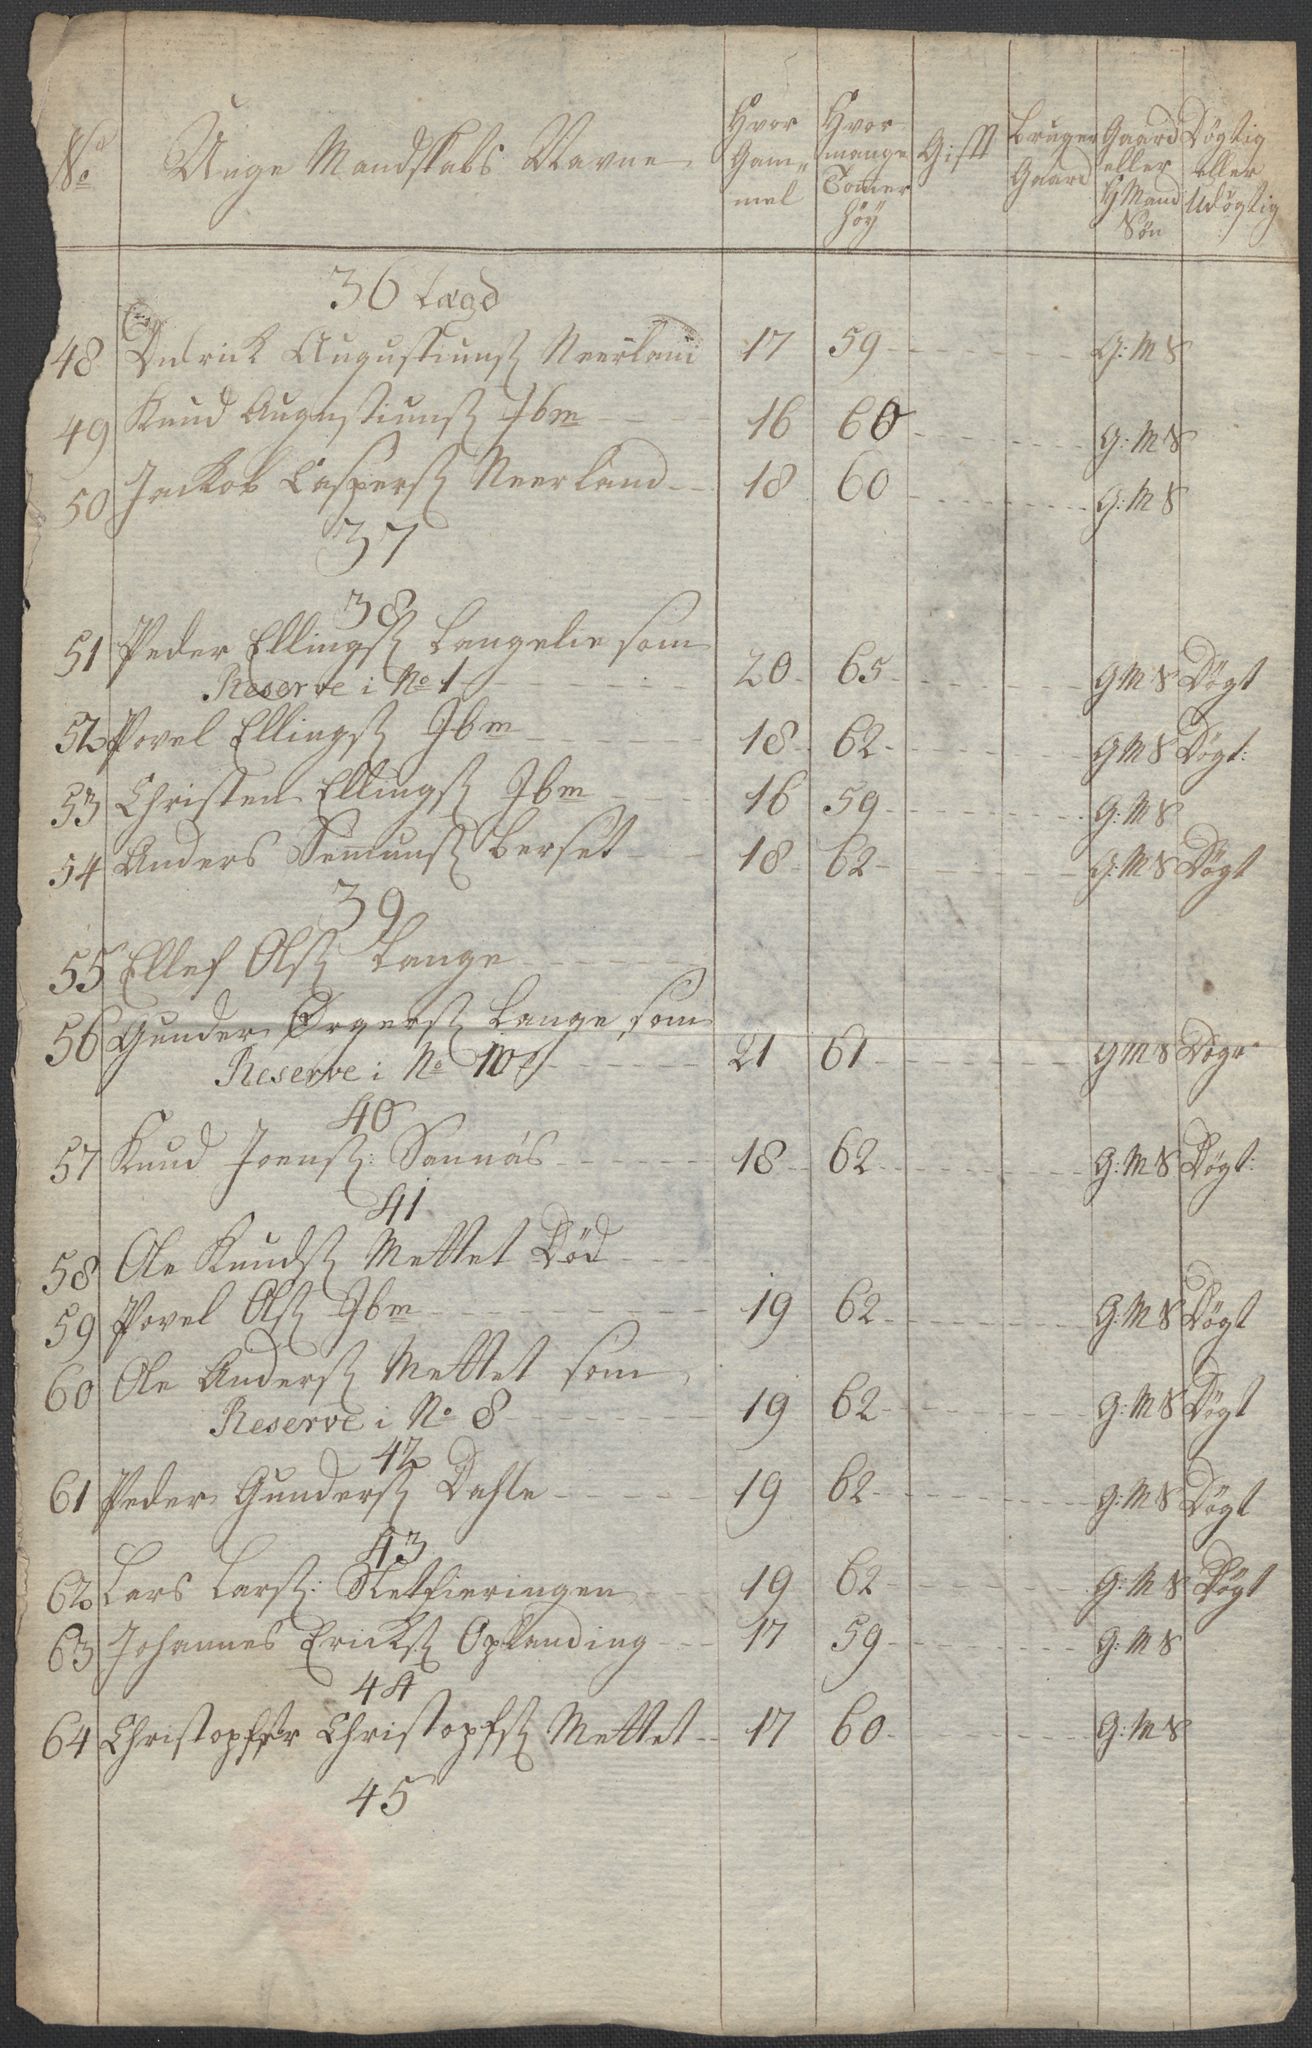 No Unge Mandskabs Navne Hvor Gam„mel Hvor mange Tomer höÿ Gift Bruger Gaard Gaard eller H Mand Søn Døgtig eller Udøgtig
36 Lægd
48 Didrick Augustiuns: Neerland 17 59 G: M S
49 Knud Augustiuns: Ibm 16 60 G: M S
50 Jackob Caspers: Neerland 18 60 G: M S
37
38
51 Peder Ellings: Langelie som
Reserve i No 1 20 65 G M S Døgt
52 Povel Ellings: Ibm 18 62 G M S Døgt:
53 Christen Ellings: Ibm 16 59 G: M S
54 Anders Semuns: Berset 18 62 G: M S Døgt
39
55 Ellef Ols: Lange
56 Gunder Ørgers: Lange som
Reserve i No 10 21 61 G M S Døgt
40
57 Knud Joens: Sannås 18 62 G: M S Døgt:
41
58 Ole Knuds: Mettet Död
59 Povel Ols: Ibm 19 62 G: M S Døgt
60 Ole Anders: Mettet som
Reserve i No 8 19 62 G: M S Døgt
42
61 Peder Gunders: Dahle 19 62 G: M S Døgt
43
62 Lars Lars: Sletfieringen 19 62 G: M S Døgt
63 Johannes Ericks: Oplanding 17 59 G: M S
44
64 Christopffer Christopfs: Mettet 17 60 G: M S
45